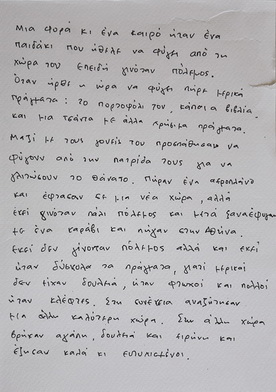 Μια φορά κι ένα καιρό ήταν ένα
παιδάκι που ήθελε να φύγει από τη
χώρα του επειδή γινόταν πόλεμος.
Όταν ήρθε η ώρα να φύγει πήρε μερικά
πράγματα: το πορτοφόλι του, κάποια βιβλία
και μια τσάντα με άλλα χρήσιμα πράγματα.
Μαζί με τους γονείς του προσπάθησαν να
φύγουν από την πατρίδα τους για να
γλιτώσουν το θάνατο. Πήραν ένα αεροπλάνο
και έφτασαν σε μια νέα χώρα, αλλά
εκεί γινόταν πάλι πόλεμος και μετά ξαναέφυγαν
με ένα καράβι και πήγαν στην Αθήνα.
Εκεί δεν γινόταν πόλεμος αλλά και εκεί
ήταν δύσκολα τα πράγματα, γιατί μερικοί
δεν είχαν δουλειά, ήταν φτωχοί και πολλοί
ήταν κλέφτες. Στη συνέχεια αναζήτησαν
μια άλλη καλύτερη χώρα. Στη άλλη χώρα
βρήκαν αγάπη, δουλειά και ειρήνη και
έζησαν καλά κι ευτυχισμένοι.